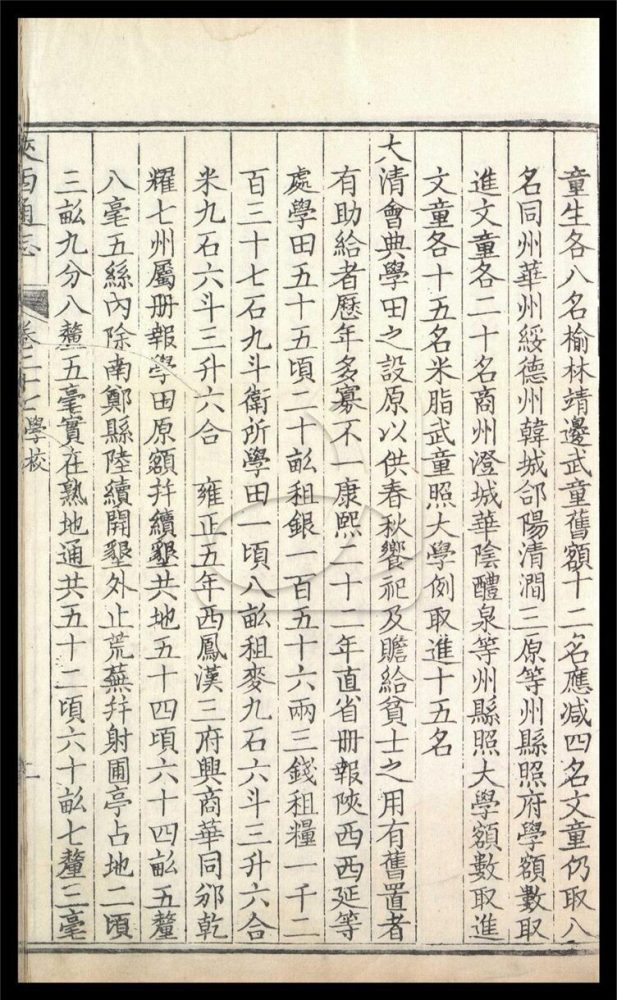 童生各八名榆林靖邊武童舊額十二名應減四名文童仍取八
名同州華州綏德州韓城郃陽清澗三原等州縣照府學額數取
進文童各二十名商州澄城華陰醴泉等州縣照大學額數取進
文童各十五名米脂武童照大學例取進十五名
大清會典學田之設原以供春秋饗祀及贍給貧士之用有舊置者
有助給者歷年多寡不一康熙二十二年直省册報陝西西延等
處學田五十五頃二十畝租銀一百五十六兩三錢租糧一千二
百三十七石九斗衛所學田一頃八畝租麥九石六斗三升六合
米九石六斗三升六合　雍正五年西鳳漢三府興商華同邠乾
耀七州屬册報學田原額并續墾共地五十四頃六十四畝五釐
八毫五絲內除南鄭縣陸續開墾外止荒蕪并射圃亭占地二頃
三畝九分八釐五毫實在熟地通共五十二頃六十畝七釐三毫
陝西通志
卷二十七學校